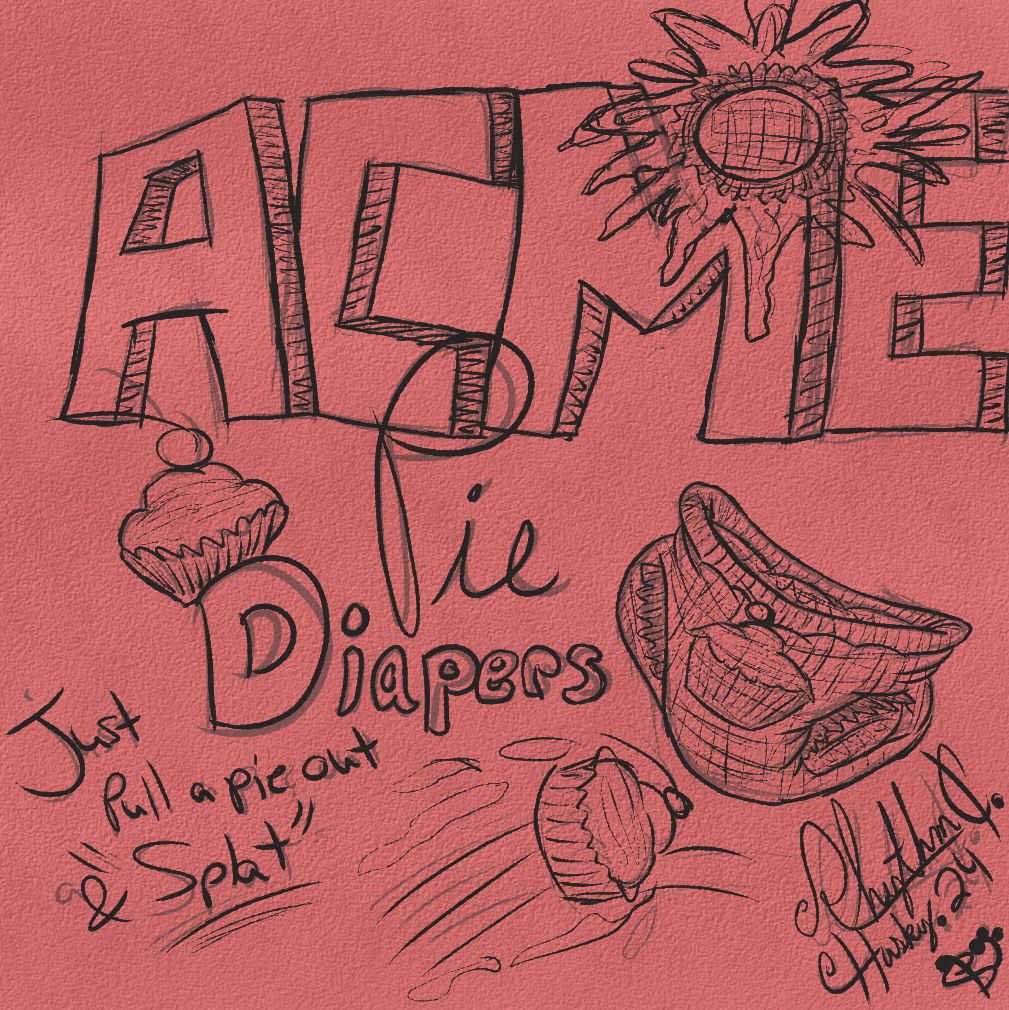 ACME
Pie
Diapers
Just
Pull a pie out
& "Splat"
Rhythm D.
Husky. 24